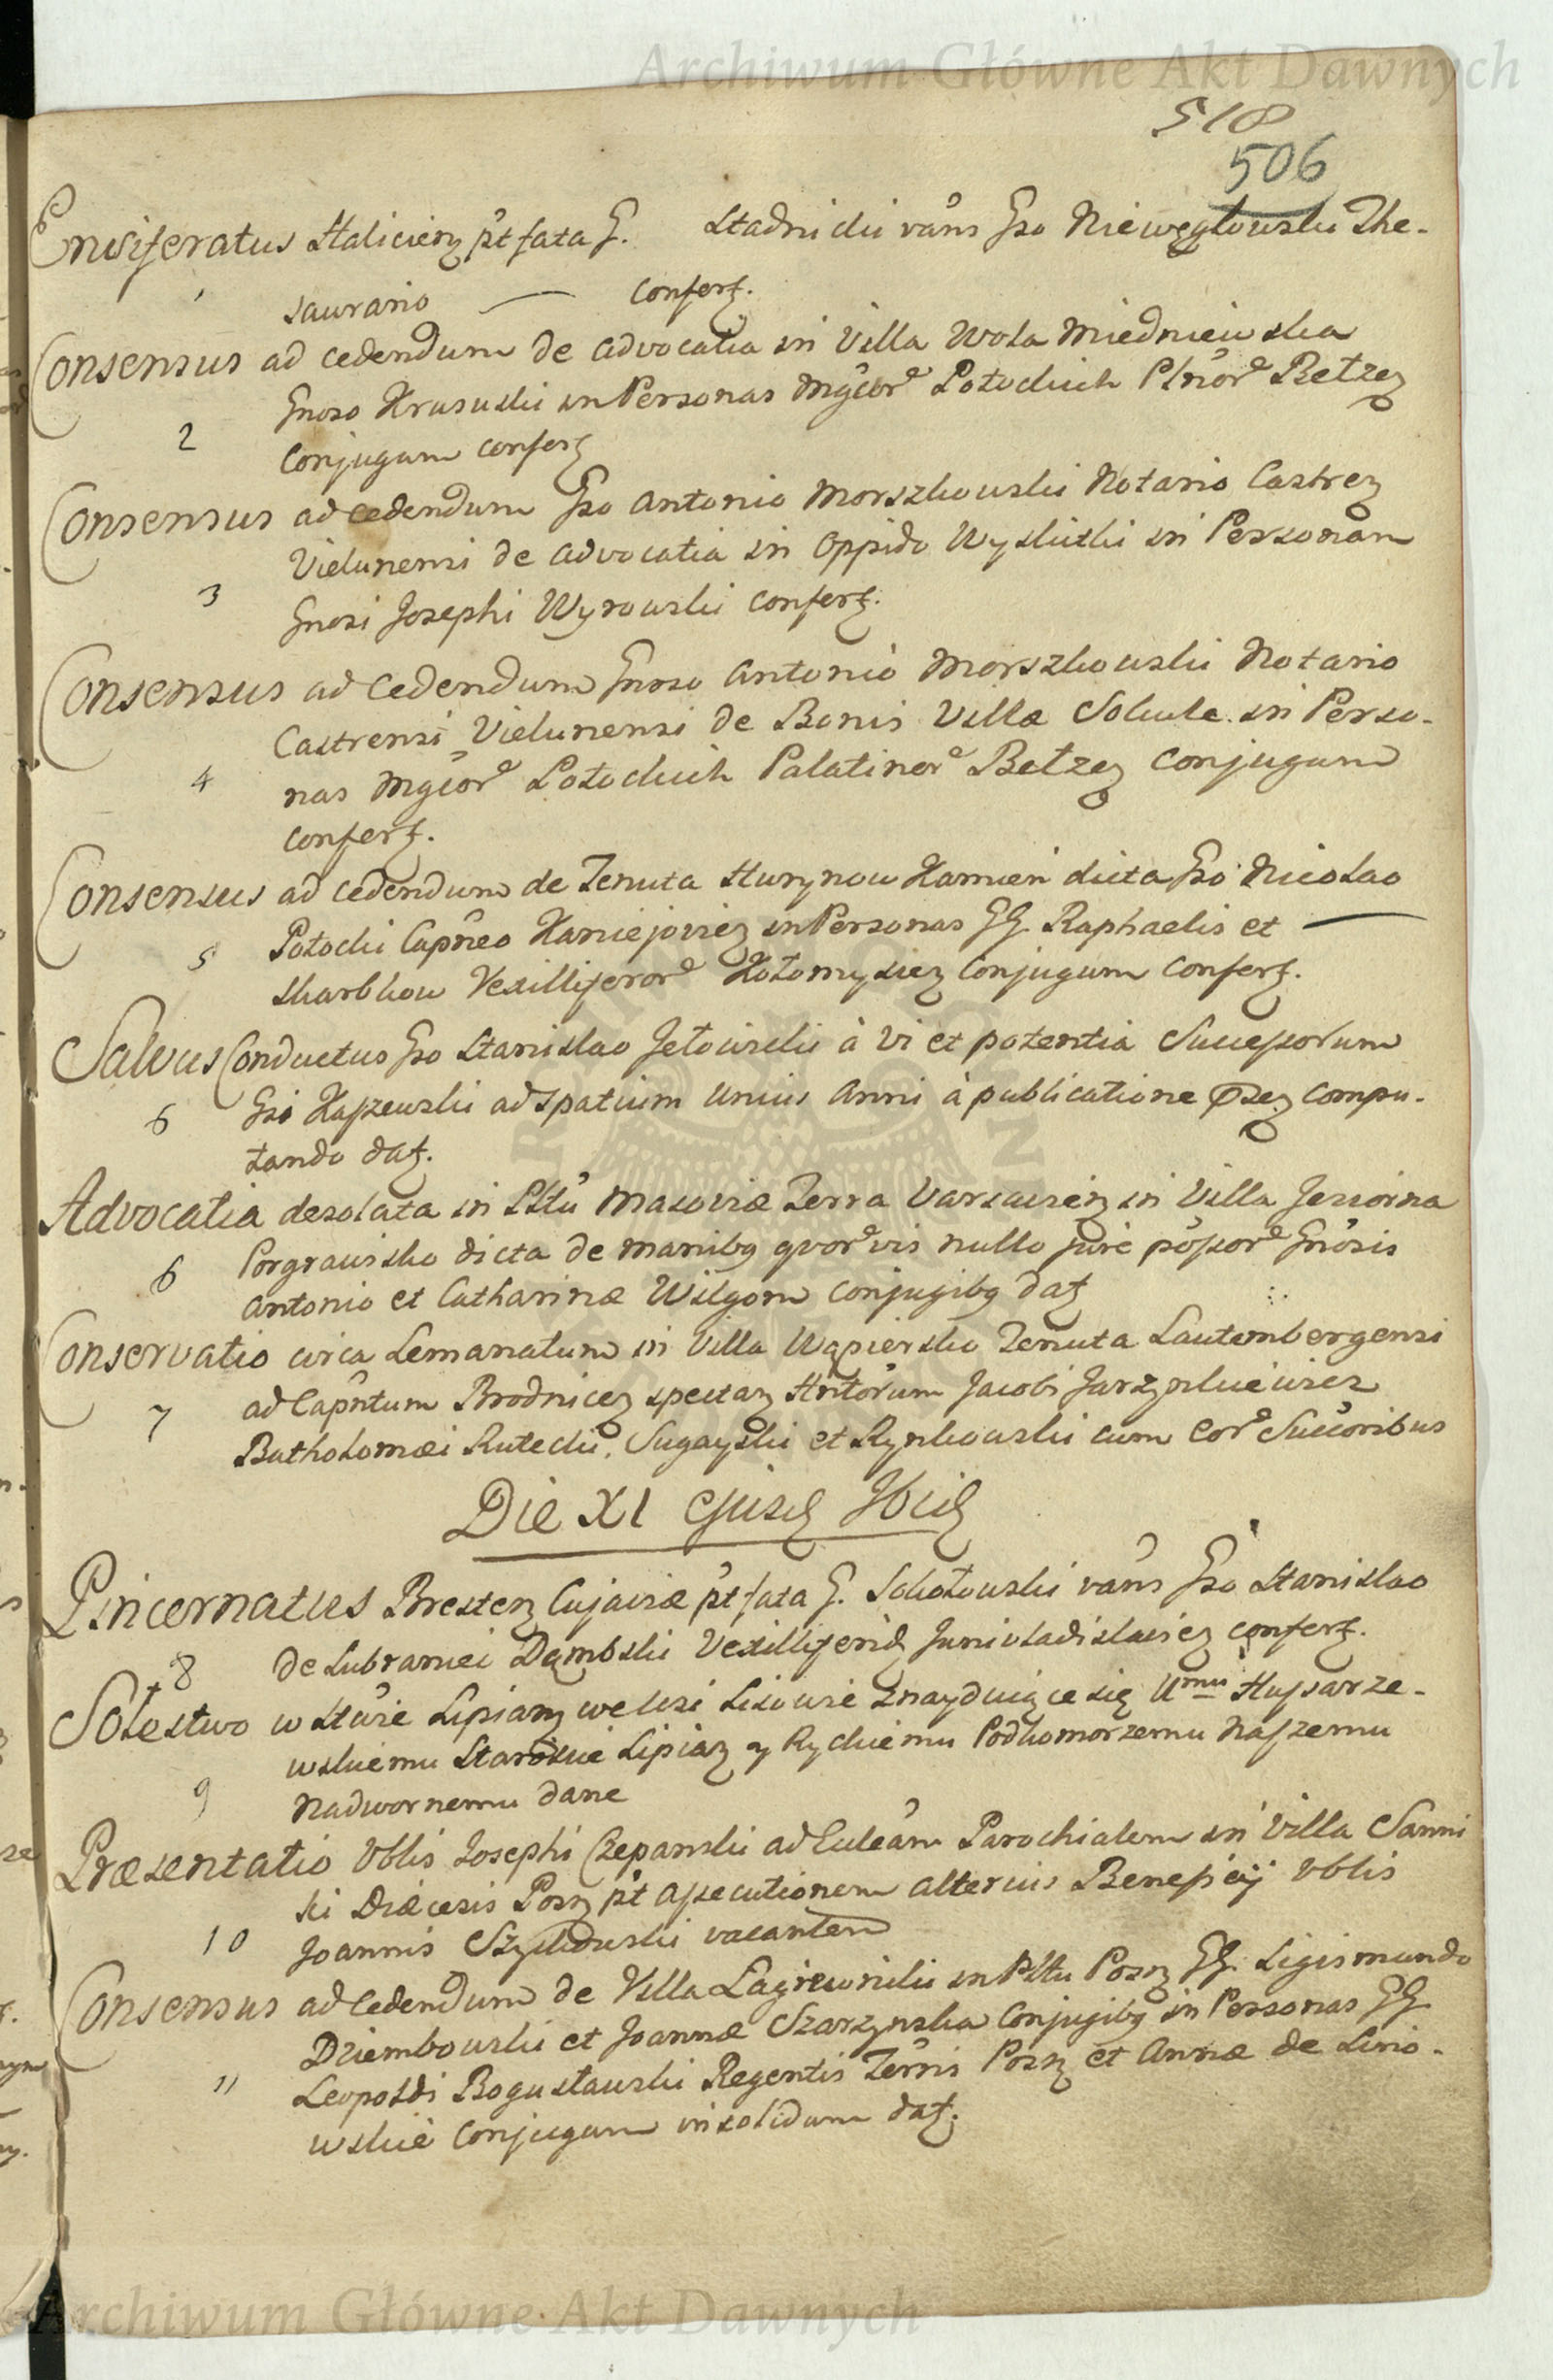 Archiwum Główne Akt Dawnych
518
506
Ensiferatus Halicien pt fata G. Stadnicki vans Gso Niewęgłowski The-
1 saurario — Confert.
Consensus ad cedendum de Advocatia in Villa Wola Miedniewska
Gnoso Krasuski in Personas Mgcor Potockich Pltnor Bełzen
2 Conjugum confert
Consensus ad cedendum Gso Antonio Morszkowski Notario Castren
Vielunensi de Advocatia in Oppido Wyslitki in Personam
3 Gnosi Josephi Wyrowski confert.
Consensus ad Cedendum Gnoso Antonio Morszkowski Notario
Castrensi Vielunensi de Bonis Villæ in Perso-
4 nas Mgcor Potockich Palatinor Bełzen Conjugum
confert.
Consensus ad cedendum de Tenuta Hurynow Kamien dicta Gso Nicolao
5 Potocki Capneo Kaniejovien in Personas GG. Raphaelis et —
Skarbkow Vexilliferor Kołomyien Conjugum Confert.
Salvus Conductus Gso Stanislao Jełowicki à vi et potentia Successorum
6 Gsi Kaszewski ad spatium unius Anni à publicatione compu-
tando dat.
Advocatia desolata in Pltu Masoviæ Terra Varsavien in Villa Jeziorna
6 dicta de manibq qvorvis nullo jure possor Gnosis
Antonio et Catharinæ Wilgom conjugibq dat
Conservatio circa Lemanatum in Villa Wąpiersko Tenuta Lautembergensi
7 ad Capntum Brodnicen spectan Hntorum Jacobi
Bathołomæi Rutecki, Sugayski et Rynkowski cum eor Succoribus
Die XI ejusd
Pincernatus Bresten Cujaviæ pt fata G. Sokołowski vans Gso Stanislao
8 de Lubraniec Dąmbski Vexilliferid Junivladislavien confert.
Sołestwo w Stwie Lipian we wsi Lisowie znayduiące się Umu Hussarze-
wskiemu Staroscie Lipian y Rychiemu Podkomorzemu Naszemu
9 Nadwornemu dane
Præsentatio Vblis Josephi Czepanski ad Ecleam Parochialem in Villa Sanni
ki Diæcesis Posn pt assecutionem alterius Beneficij Vblis
10 Joannis Szydłowski vacantem
Consensus ad cedendum de Villa Łagiewniki in Pltu Posn GG. Sigismundo
Dziembowski et Joannæ Szarzynska Conjugibq in Personas GG.
11 Leopoldi Bogusławski Regentis Terris Posn et Annæ de Lino-
wskie Conjugum in solidum dat.
Archiwum Główne Akt Dawnych